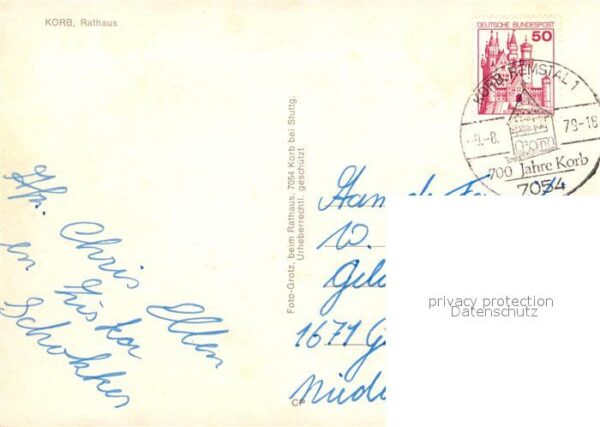 KORB, Rathaus
DEUTSCHE BUNDESPOST
50
KORB, REMSTAL 1
-9.-8. 79-18
700 Jahre Korb
7054
Foto-Grotz, beim Rathaus, 7054 Korb bei Stuttg.
Urheberrechtl. geschützt
CP
Chris Ellen
en
Schokker
W.
Geld
1671 G
Niede
privacy protection
Datenschutz